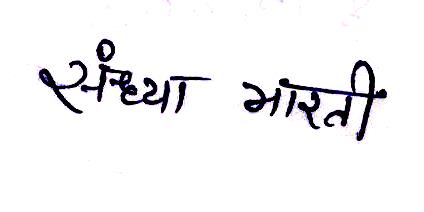 संध्या भारती